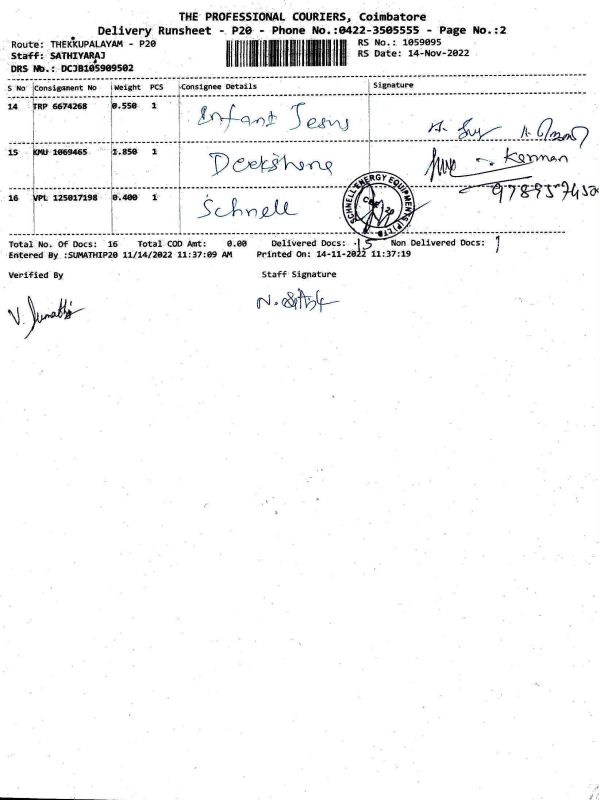 THE PROFESSIONAL COURIERS, Coimbatore
Delivery Runsheet - P20 - Phone No.:0422-3505555 - Page No.:2
Route: THEKKUPALAYAM - P20
RS No.: 1059095
Staff: SATHIYARAJ
RS Date: 14-Nov-2022
DRS No.: DCJB105909502
S No Consignment No Weight PCS Consignee Details Signature
14 TRP 6674268 0.550 1 Infant Jesus
15 KMU 1069465 1.850 1 Deekshana Kannan
16 VPL 125017198 0.400 1 Schnell
SCHNELL ENERGY EQUIPMENTS (P) LTD
Total No. Of Docs: 16 Total COD Amt: 0.00 Delivered Docs: 15 Non Delivered Docs: 1
Entered By :SUMATHIP20 11/14/2022 11:37:09 AM Printed On: 14-11-2022 11:37:19
Verified By Staff Signature
V. Sumathi